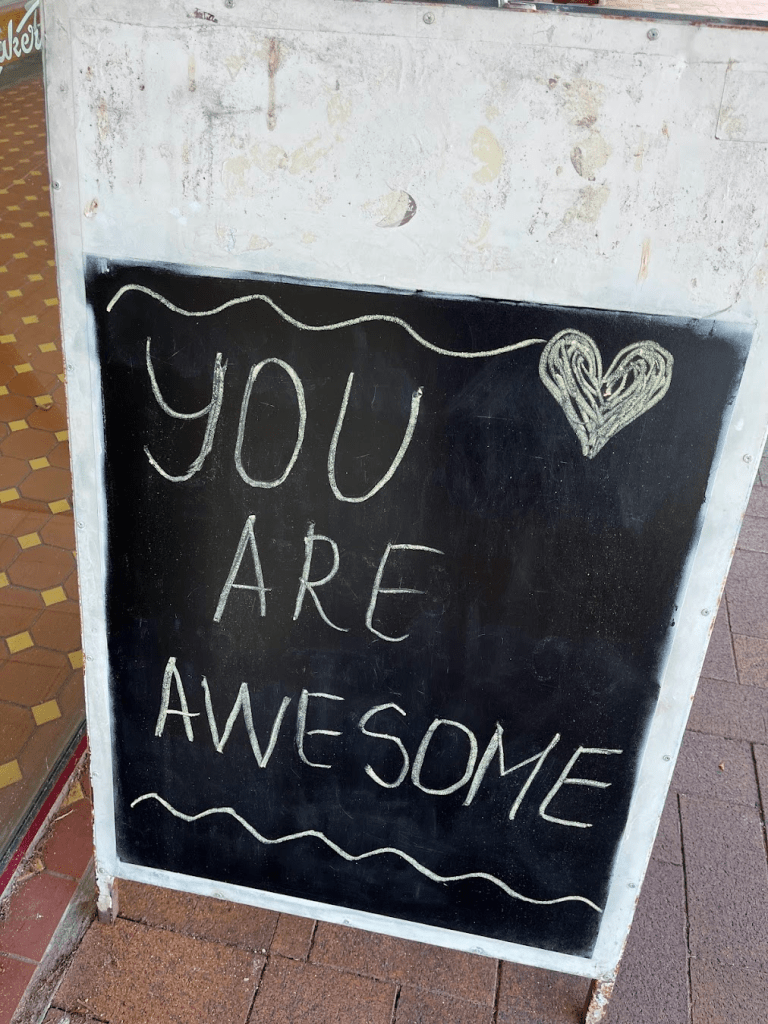 YOU
ARE
AWESOME